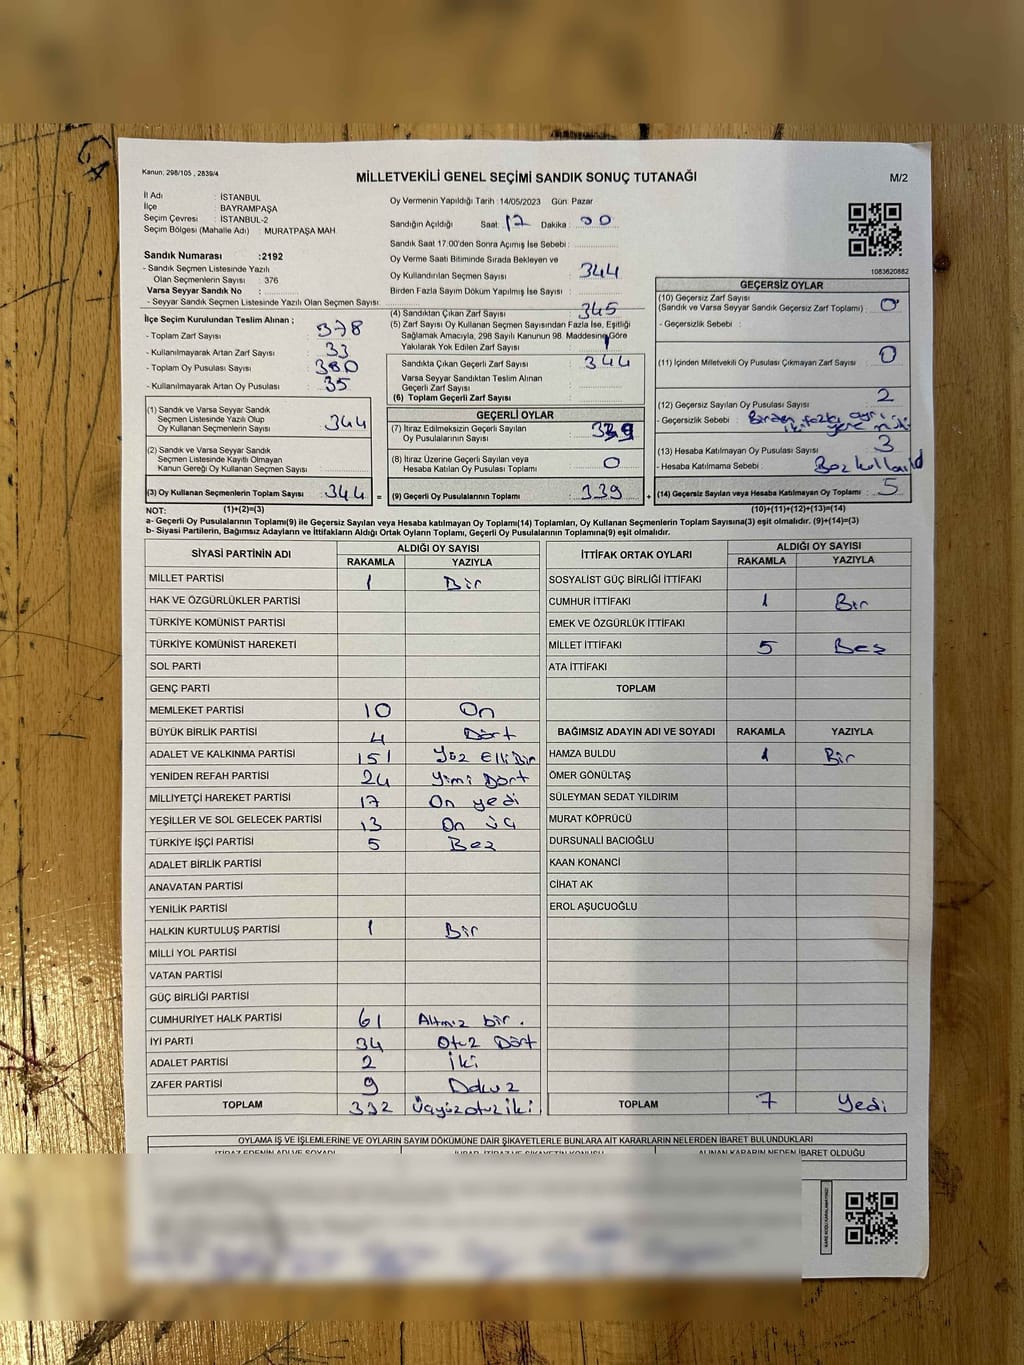 Kanun, 298/105 , 2839/4
MİLLETVEKİLİ GENEL SEÇİMİ SANDIK SONUÇ TUTANAĞI
M/2
İl Adı : İSTANBUL
İlçe : BAYRAMPAŞA
Seçim Çevresi : İSTANBUL-2
Seçim Bölgesi (Mahalle Adı) : MURATPAŞA MAH.
Sandık Numarası :2192
- Sandık Seçmen Listesinde Yazılı
Olan Seçmenlerin Sayısı : 376
Varsa Seyyar Sandık No :
- Seyyar Sandık Seçmen Listesinde Yazılı Olan Seçmen Sayısı:
İlçe Seçim Kurulundan Teslim Alınan ;
- Toplam Zarf Sayısı : 378
- Kullanılmayarak Artan Zarf Sayısı : 33
- Toplam Oy Pusulası Sayısı : 380
- Kullanılmayarak Artan Oy Pusulası : 35
(1) Sandık ve Varsa Seyyar Sandık
Seçmen Listesinde Yazılı Olup
Oy Kullanan Seçmenlerin Sayısı : 344
(2) Sandık ve Varsa Seyyar Sandık
Seçmen Listesinde Kayıtlı Olmayan
Kanun Gereği Oy Kullanan Seçmen Sayısı :
(3) Oy Kullanan Seçmenlerin Toplam Sayısı : 344 =
Oy Vermenin Yapıldığı Tarih : 14/05/2023 Gün: Pazar
Sandığın Açıldığı Saat: 17 Dakika : 00
Sandık Saat 17:00'den Sonra Açımış İse Sebebi :
Oy Verme Saati Bitiminde Sırada Bekleyen ve
Oy Kullandırılan Seçmen Sayısı : 344
Birden Fazla Sayım Döküm Yapılmış İse Sayısı :
(4) Sandıktan Çıkan Zarf Sayısı : 345
(5) Zarf Sayısı Oy Kullanan Seçmen Sayısından Fazla İse, Eşitliği
Sağlamak Amacıyla, 298 Sayılı Kanunun 98. Maddesine Göre
Yakılarak Yok Edilen Zarf Sayısı : 1
Sandıkta Çıkan Geçerli Zarf Sayısı : 344
Varsa Seyyar Sandıktan Teslim Alınan
Geçerli Zarf Sayısı
(6) Toplam Geçerli Zarf Sayısı :
GEÇERLİ OYLAR
(7) İtiraz Edilmeksizin Geçerli Sayılan
Oy Pusulalarının Sayısı : 339
(8) İtiraz Üzerine Geçerli Sayılan veya
Hesaba Katılan Oy Pusulası Toplamı : 0
(9) Geçerli Oy Pusulalarının Toplamı : 339 +
1083620882
GEÇERSİZ OYLAR
(10) Geçersiz Zarf Sayısı
(Sandık ve Varsa Seyyar Sandık Geçersiz Zarf Toplamı) : 0
- Geçersizlik Sebebi :
(11) İçinden Milletvekili Oy Pusulası Çıkmayan Zarf Sayısı : 0
(12) Geçersiz Sayılan Oy Pusulası Sayısı : 2
- Geçersizlik Sebebi : Birden fazla ayrı
yere
(13) Hesaba Katılmayan Oy Pusulası Sayısı : 3
- Hesaba Katılmama Sebebi : Boz
(14) Geçersiz Sayılan veya Hesaba Katılmayan Oy Toplamı : 5
NOT: (1)+(2)=(3) (10)+(11)+(12)+(13)=(14)
a- Geçerli Oy Pusulalarının Toplamı(9) ile Geçersiz Sayılan veya Hesaba katılmayan Oy Toplamı(14) Toplamları, Oy Kullanan Seçmenlerin Toplam Sayısına(3) eşit olmalıdır. (9)+(14)=(3)
b- Siyasi Partilerin, Bağımsız Adayların ve İttifakların Aldığı Ortak Oyların Toplamı, Geçerli Oy Pusulalarının Toplamına(9) eşit olmalıdır.
SİYASİ PARTİNİN ADI ALDIĞI OY SAYISI
RAKAMLA YAZIYLA
MİLLET PARTİSİ 1 Bir
HAK VE ÖZGÜRLÜKLER PARTİSİ
TÜRKİYE KOMÜNİST PARTİSİ
TÜRKİYE KOMÜNİST HAREKETİ
SOL PARTİ
GENÇ PARTİ
MEMLEKET PARTİSİ 10 On
BÜYÜK BİRLİK PARTİSİ 4 Dört
ADALET VE KALKINMA PARTİSİ 151 Yüz Elli Bir
YENİDEN REFAH PARTİSİ 24 Yimi Dört
MİLLİYETÇİ HAREKET PARTİSİ 17 On yedi
YEŞİLLER VE SOL GELECEK PARTİSİ 13 On üç
TÜRKİYE İŞÇİ PARTİSİ 5 Beş
ADALET BİRLİK PARTİSİ
ANAVATAN PARTİSİ
YENİLİK PARTİSİ
HALKIN KURTULUŞ PARTİSİ 1 Bir
MİLLİ YOL PARTİSİ
VATAN PARTİSİ
GÜÇ BİRLİĞİ PARTİSİ
CUMHURİYET HALK PARTİSİ 61 Altmış bir .
İYİ PARTİ 34 Otuz Dört
ADALET PARTİSİ 2 İki
ZAFER PARTİSİ 9 Dokuz
TOPLAM 332 Üçyüzotuz iki
İTTİFAK ORTAK OYLARI ALDIĞI OY SAYISI
RAKAMLA YAZIYLA
SOSYALİST GÜÇ BİRLİĞİ İTTİFAKI
CUMHUR İTTİFAKI 1 Bir
EMEK VE ÖZGÜRLÜK İTTİFAKI
MİLLET İTTİFAKI 5 Beş
ATA İTTİFAKI
TOPLAM
BAĞIMSIZ ADAYIN ADI VE SOYADI RAKAMLA YAZIYLA
HAMZA BULDU 1 Bir
ÖMER GÖNÜLTAŞ
SÜLEYMAN SEDAT YILDIRIM
MURAT KÖPRÜCÜ
DURSUNALİ BACIOĞLU
KAAN KONANCİ
CİHAT AK
EROL AŞUCUOĞLU
TOPLAM 7 Yedi
OYLAMA İŞ VE İŞLEMLERİNE VE OYLARIN SAYIM DÖKÜMÜNE DAİR ŞİKAYETLERLE BUNLARA AİT KARARLARIN NELERDEN İBARET BULUNDUKLARI
ALINAN KARARIN NEDEN İBARET OLDUĞU